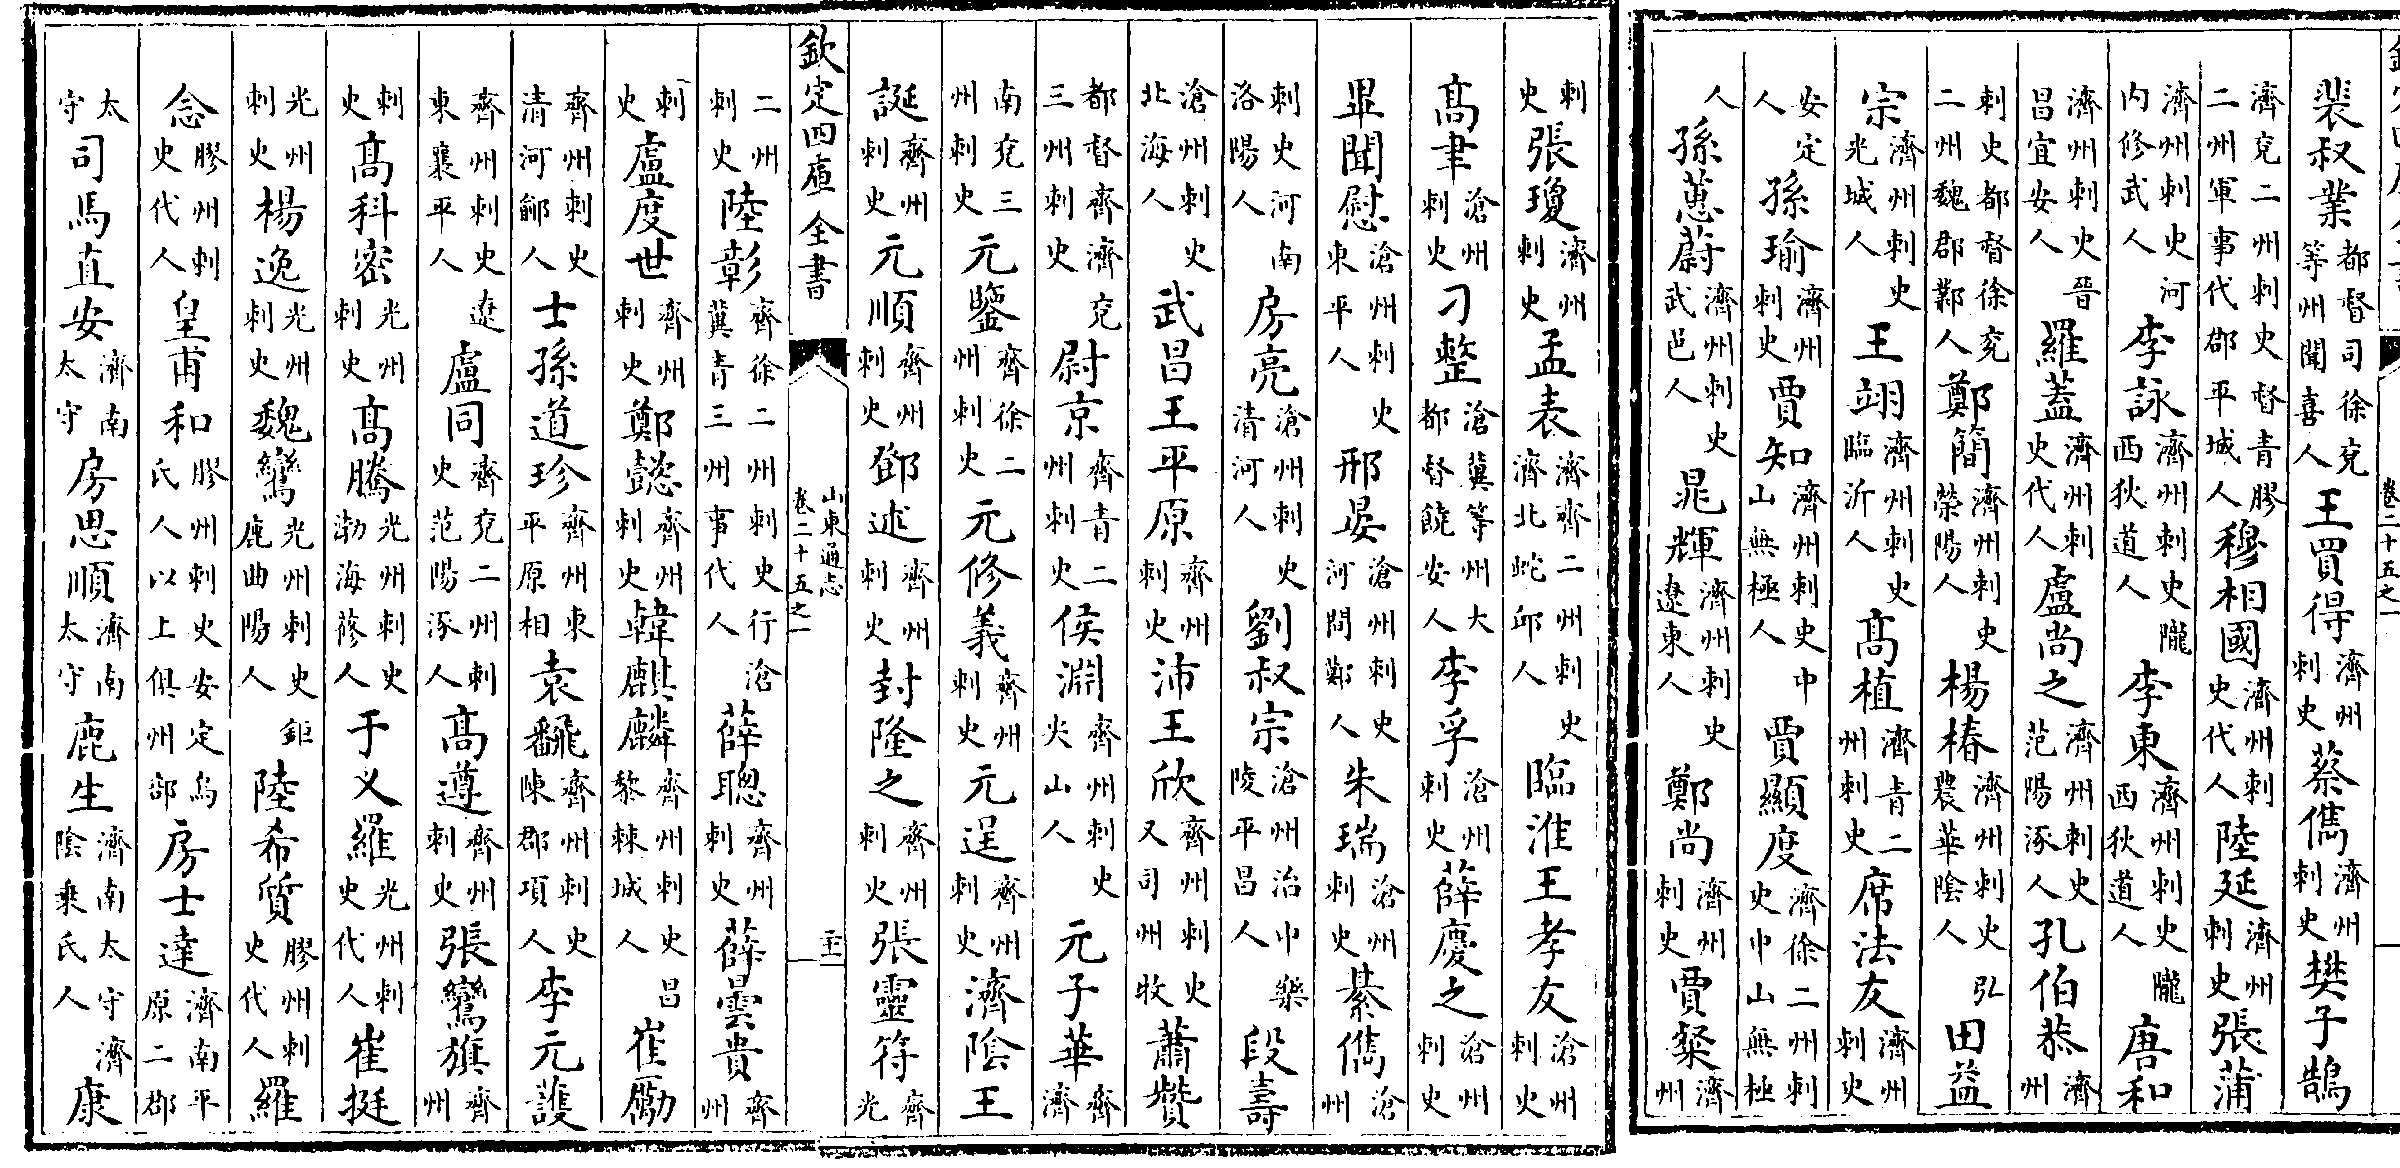 卷二十五之一
裴叔業都督司徐兗等州聞喜人王買得濟州刺史蔡儁濟州刺史樊子鵠
濟兗二州刺史督青膠二州軍事代郡平城人穆相國濟州刺史代人陸延濟州刺史張蒲
濟州刺史河內修武人李詠濟州刺史隴西狄道人李東濟州刺史隴西狄道人唐和
濟州刺史晉昌宜安人羅蓋濟州刺史代人盧尚之濟州刺史范陽涿人孔伯恭濟州
刺史都督徐兗二州魏郡鄴人鄭簡濟州刺史滎陽人楊椿濟州刺史弘農華陰人田益
宗濟州刺史光城人王翊濟州刺史臨沂人高植濟青二州刺史席法友濟州刺史
安定人孫瑜濟州刺史賈知濟州刺史中山無極人賈顯度濟徐二州刺史中山無極
人孫蕙蔚濟州刺史武邑人晁輝濟州刺史遼東人鄭尚濟州刺史賈粲濟州
刺史張瓊濟州刺史孟表濟齊二州刺史濟北蛇邱人臨淮王孝友滄州刺史
高聿滄州刺史刁整滄冀等州大都督饒安人李孚滄州刺史薛慶之滄州刺史
畢聞慰滄州刺史東平人邢晏滄州刺史河間鄭人朱瑞滄州刺史綦儁滄州
刺史河南洛陽人房亮滄州刺史清河人劉叔宗滄州治中樂陵平昌人段壽
滄州刺史北海人武昌王平原齊州刺史沛王欣齊州刺史又司州牧蕭贊
都督齊濟兗三州刺史尉京齊青二州刺史侯淵齊州刺史尖山人元子華齊濟
南兗三州刺史元鑒齊徐二州刺史元修義齊州刺史元逞齊州刺史濟陰王
誕齊州刺史元順齊州刺史鄧述齊州刺史封隆之齊州刺史張靈符齊光
欽定四庫全書 山東通志卷二十五之一
二州刺史陸彰齊徐二州刺史行滄冀青三州事代人薛聰齊州刺史薛曇貴齊州
刺史盧度世齊州刺史鄭懿齊州刺史韓麒麟齊州刺史昌黎棘城人崔勵
齊州刺史清河鄃人士孫道珍齊州東平原相袁翻齊州刺史陳郡項人李元護
齊州刺史遼東襄平人盧同齊兗二州刺史范陽涿人高遵齊州刺史張鸞旗齊州
刺史高科密光州刺史高騰光州刺史渤海蓨人于义羅光州刺史代人崔挺
光州刺史楊逸光州刺史魏鸞光州刺史鉅鹿曲陽人陸希質膠州刺史代人羅
念膠州刺史代人皇甫和膠州刺史安定烏氏人以上俱州部房士達濟南平原二郡
太守司馬直安濟南太守房思順濟南太守鹿生濟南太守濟陰乘氏人康